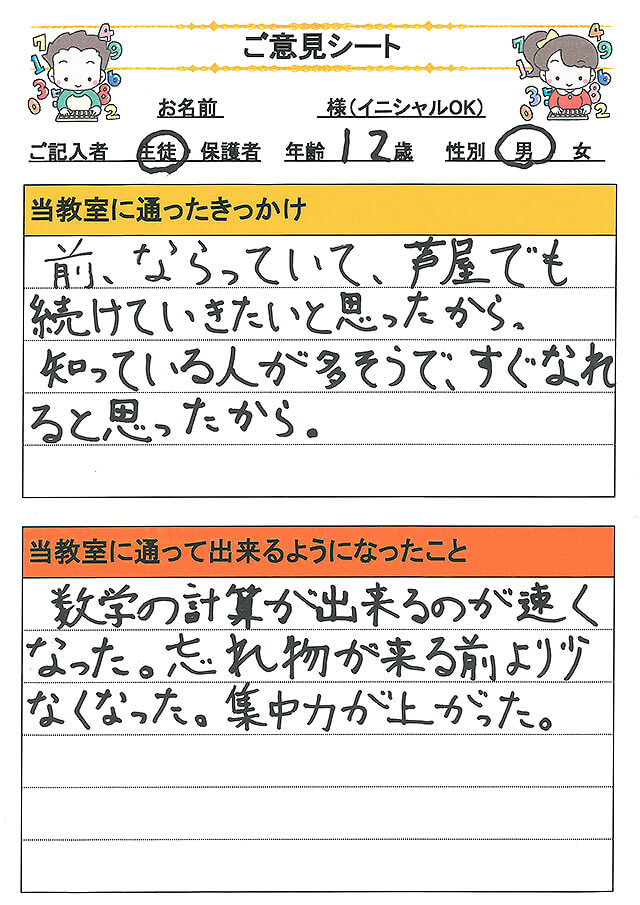 ご意見シート
お名前 様（イニシャルOK）
ご記入者 生徒・保護者 年齢 12歳 性別 男 女
当教室に通ったきっかけ
前、ならっていて、芦屋でも
続けていきたいと思ったから。
知っている人が多そうで、すぐなれ
ると思ったから。
当教室に通って出来るようになったこと
数学の計算が出来るのが速く
なった。忘れ物が来る前より少
なくなった。集中力が上がった。